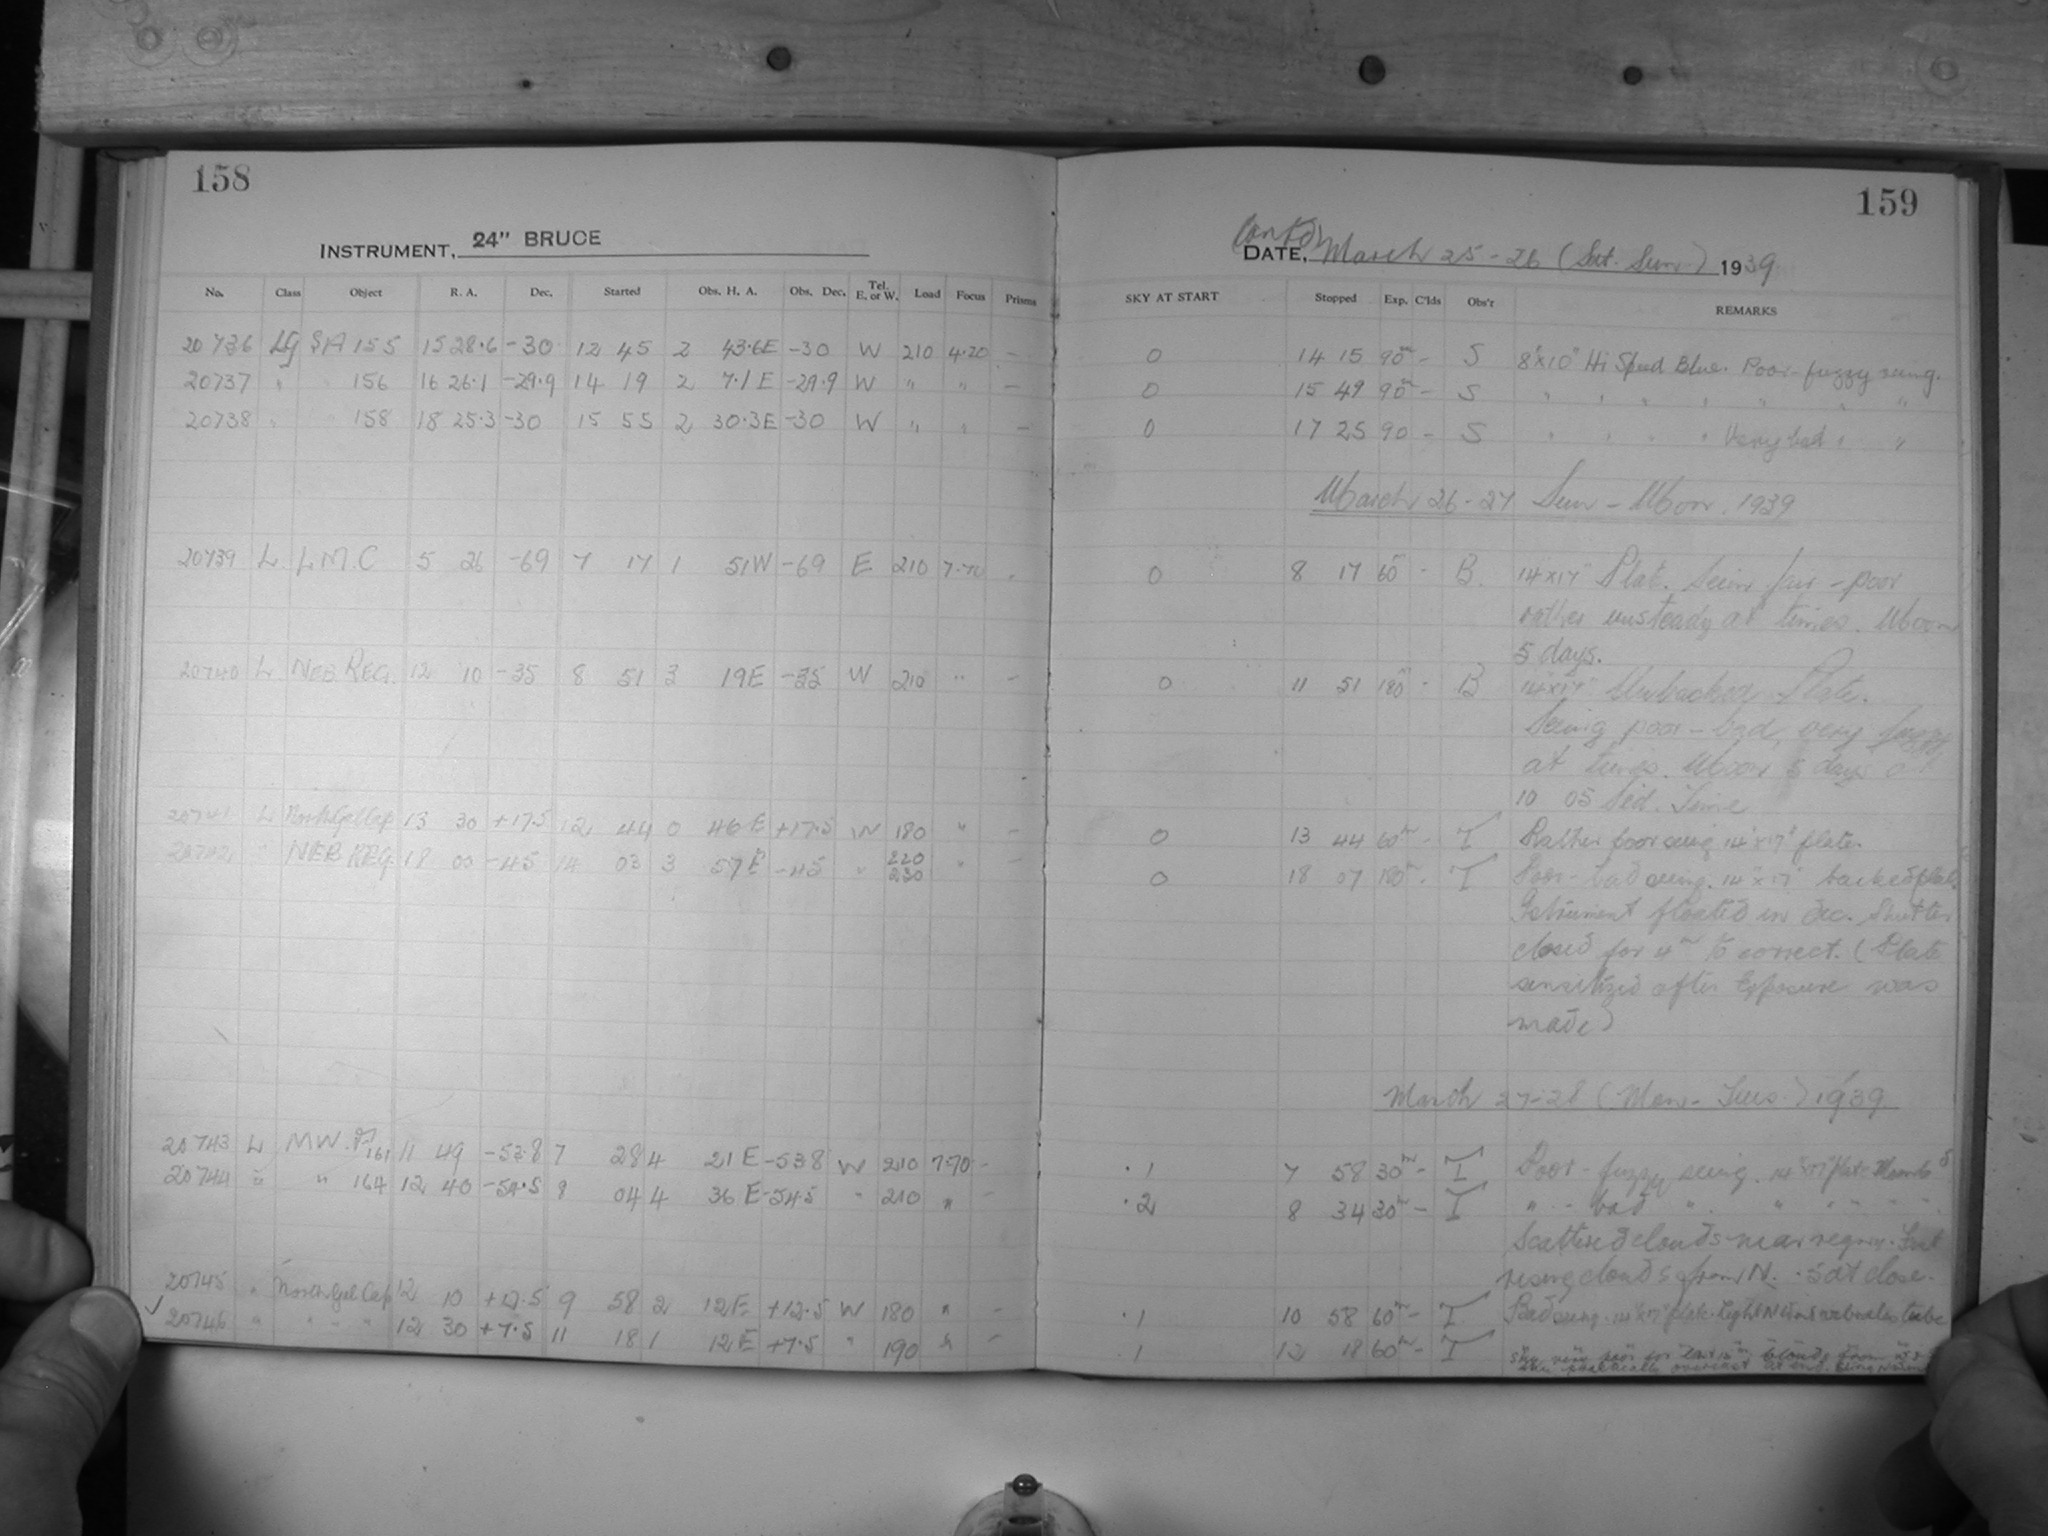 158
INSTRUMENT, 24" BRUCE
No. Class Object R. A. Dec. Started Obs. H. A. Obs. Dec. Tel. E. or W. Load Focus Prisms
20736 LG SA 155 15 28.6 -30 12 45 2 43.6E -30 W 210 4.20 -
20737 " 156 16 26.1 -29.9 14 19 2 7.1 E -29.9 W " " -
20738 " 158 18 25.3 -30 15 55 2 30.3E -30 W " " -
20739 L LMC 5 26 -69 7 17 1 51W -69 E 210 7.70
20740 L NEB. REG. 12 10 -35 8 51 3 19E -35 W 210 " -
20741 L North Gal Cap 13 30 +17.5 12 44 0 46 E +17.5 W 180 " -
20742 " NEB REG 18 00 -45 14 03 3 57 E -45 " 220 " -
230
20743 L MWF 161 11 49 -53.8 7 28 4 21 E -53.8 W 210 7.70 -
20744 " " 164 12 40 -54.5 8 04 4 36 E -54.5 " 210 " -
20745 " North Gal Cap 12 10 +12.5 9 58 2 12E +12.5 W 180 " -
✓ 20746 " " " " 12 30 +7.5 11 18 1 12 E +7.5 " 190 " -
159
Contd
DATE, March 25-26 (Sat. Sun.) 1939
SKY AT START Stopped Exp. C'lds Obs'r REMARKS
0 14 15 90m - S 8"x10" Hi Speed Blue. Poor-fuzzy seeing.
0 15 49 90m - S " " " " " " "
0 17 25 90 - S " " " " Very bad " "
March 26-27 Sun - Mon. 1939
0 8 17 60m - B. 14"x17" Plate. Seeing fair - poor
rather unsteady at times. Moon
5 days.
0 11 51 180m - B 14"x17" Unbacked Plate.
Seeing poor - bad, very fuzzy
at times. Moon 5 days at
10 05 Sid. Time
0 13 44 60m - T Rather poor seeing 14"x17" plate.
0 18 07 180m - T Poor - bad seeing. 14"x17" backed plate.
Instrument floated in dec. Shutter
closed for 4m to correct. (Plate
sensitized after Exposure was
made)
March 27-28 (Mon - Tues.) 1939
.1 7 58 30m - T Poor - fuzzy seeing. 14"x17" plate.
.2 8 34 30m - T " - bad " " " " "
Scattered clouds near region.
rising clouds from N. .5 at close.
.1 10 58 60m - T Bad seeing. 14"x17" plate. Light N wind vibrates tube
.1 12 18 60m - T Sky very poor for last 15m, clouds from
Sky practically overcast at end.